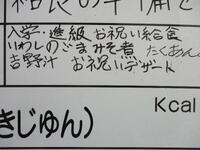 入学・進級 お祝い給食
いわしのごまみそ煮 たくあん
吉野汁 お祝いデザート
Kcal
きじゅん）